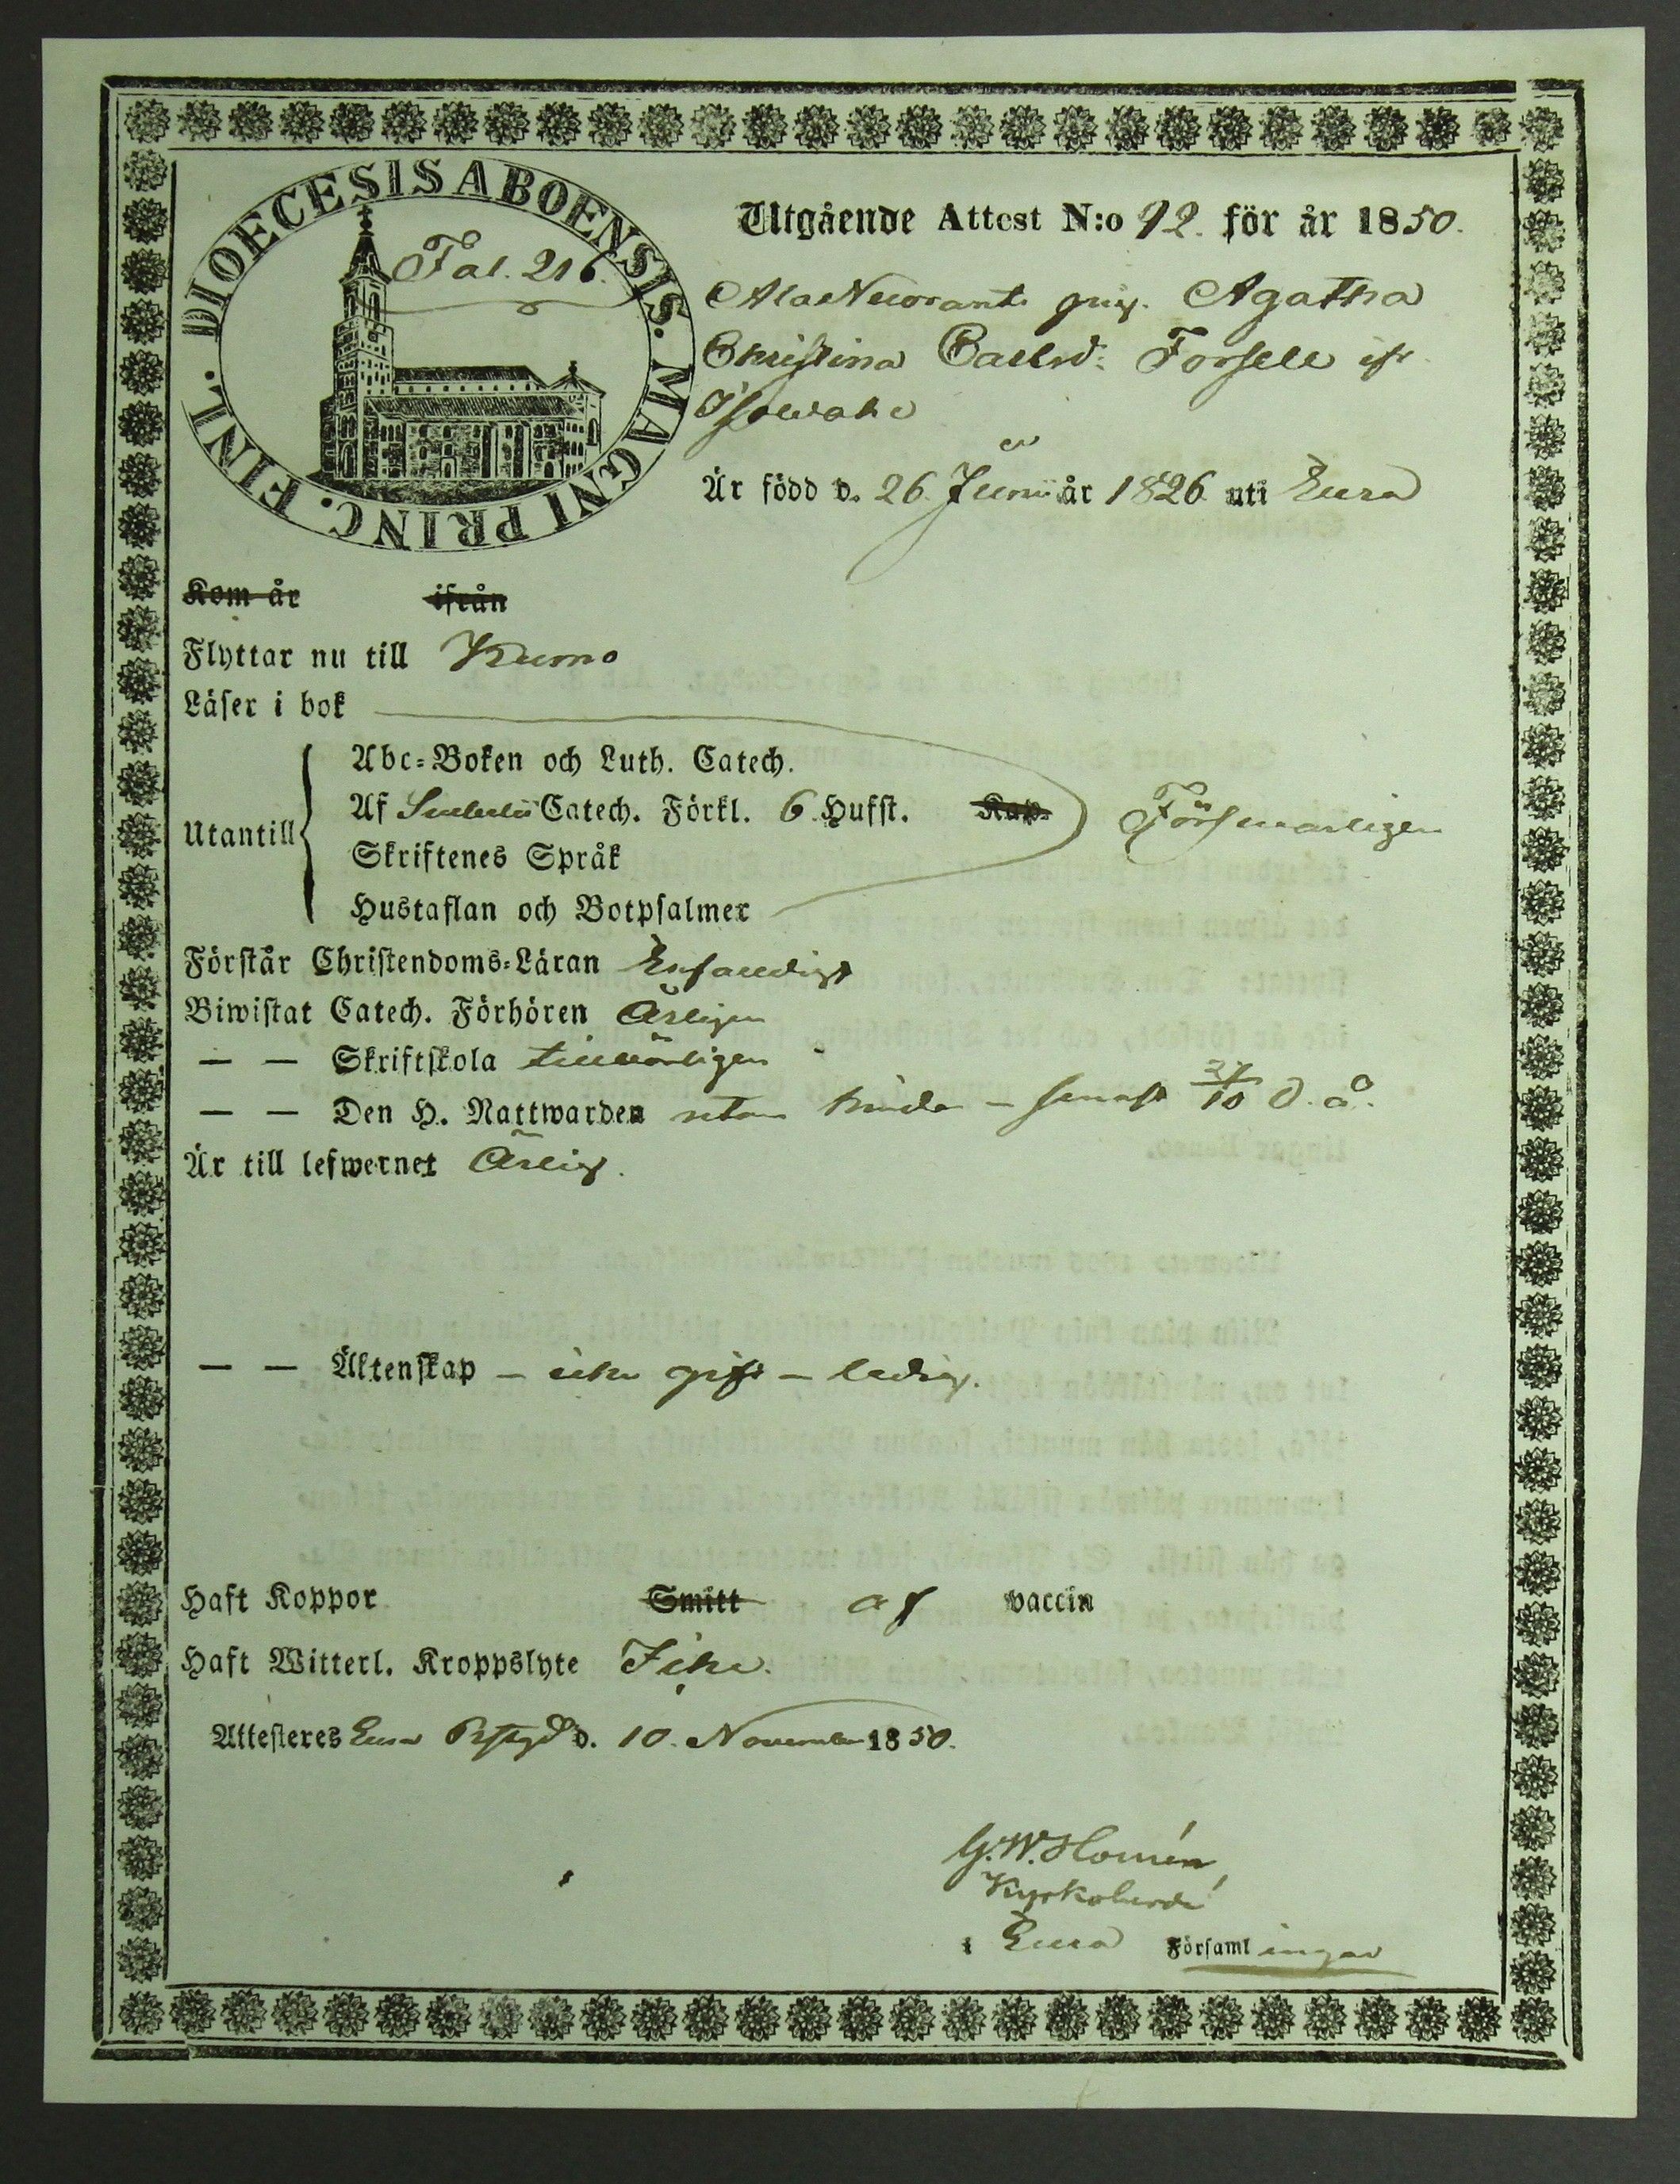 DIOECESIS ABOENSIS. MAGNI PRINC. FINL.
Fol. 216.
Utgående Attest N:o 92. för år 1850.
Agatha
Christina Carlsd: Forsell ifr
Är född d. 26. Junii år 1826 uti Eura
Kom år ifrån
Flyttar nu till Kumo
Läser i bok
Abc-Boken och Luth. Catech.
Utantill
Af Svebelii Catech. Förkl. 6 Hufst. Kap.
Försvarligen
Skriftenes Språk
Hustaflan och Botpsalmer
Förstår Christendoms-Läran Enfaldigt
Biwistat Catech. Förhören Årligen
— — Skriftskola tillbörligen
— — Den H. Nattwarden utan hinder – senast 27/10 d. å.
Är till lefwernet Ärlig.
— — Äktenskap – icke gift – ledig.
Haft Koppor Smitt af vaccin
Haft Witterl. Kroppslyte Icke.
Attesteres Eura Prstgd d. 10. November 1850.
G. W. Homén
Kyrkoherde
i Eura Församlingar